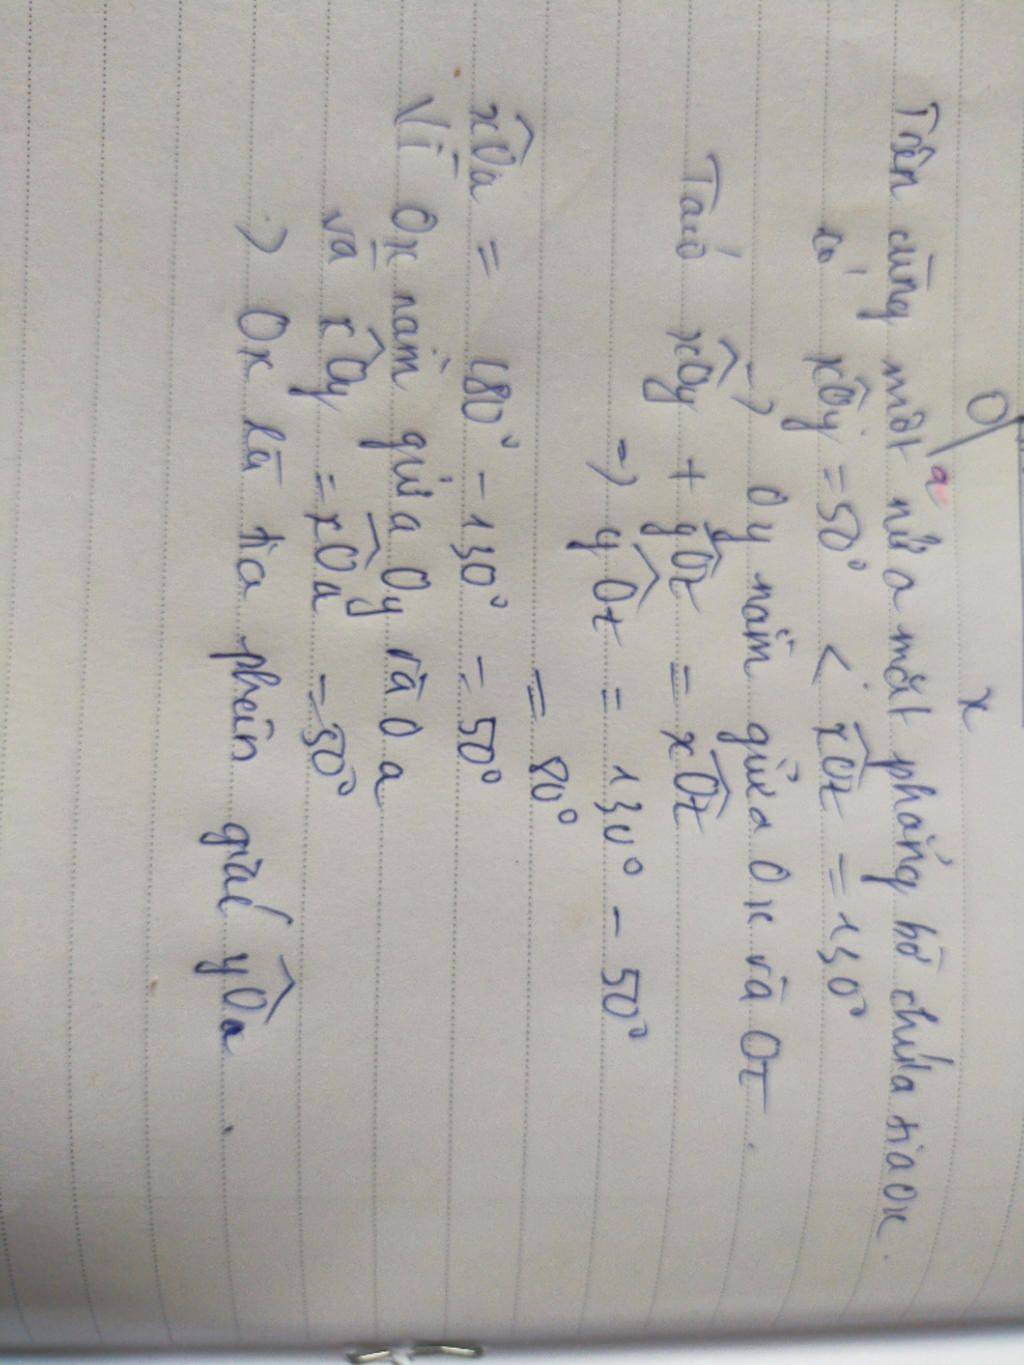 O
x
a
Trên cùng một nửa mặt phẳng bờ chứa tia Ox.
có xÔy = 50° < xÔt = 130°
-) Oy nằm giữa Ox và Ot.
Ta có xÔy + yÔt = xÔt
-) yÔt = 130° - 50°
= 80°
xÔa = 180° - 130° = 50°
Vì Ox nằm giữa Oy và Oa
và xÔy = xÔa = 50°
-) Ox là tia phân giác yÔa.